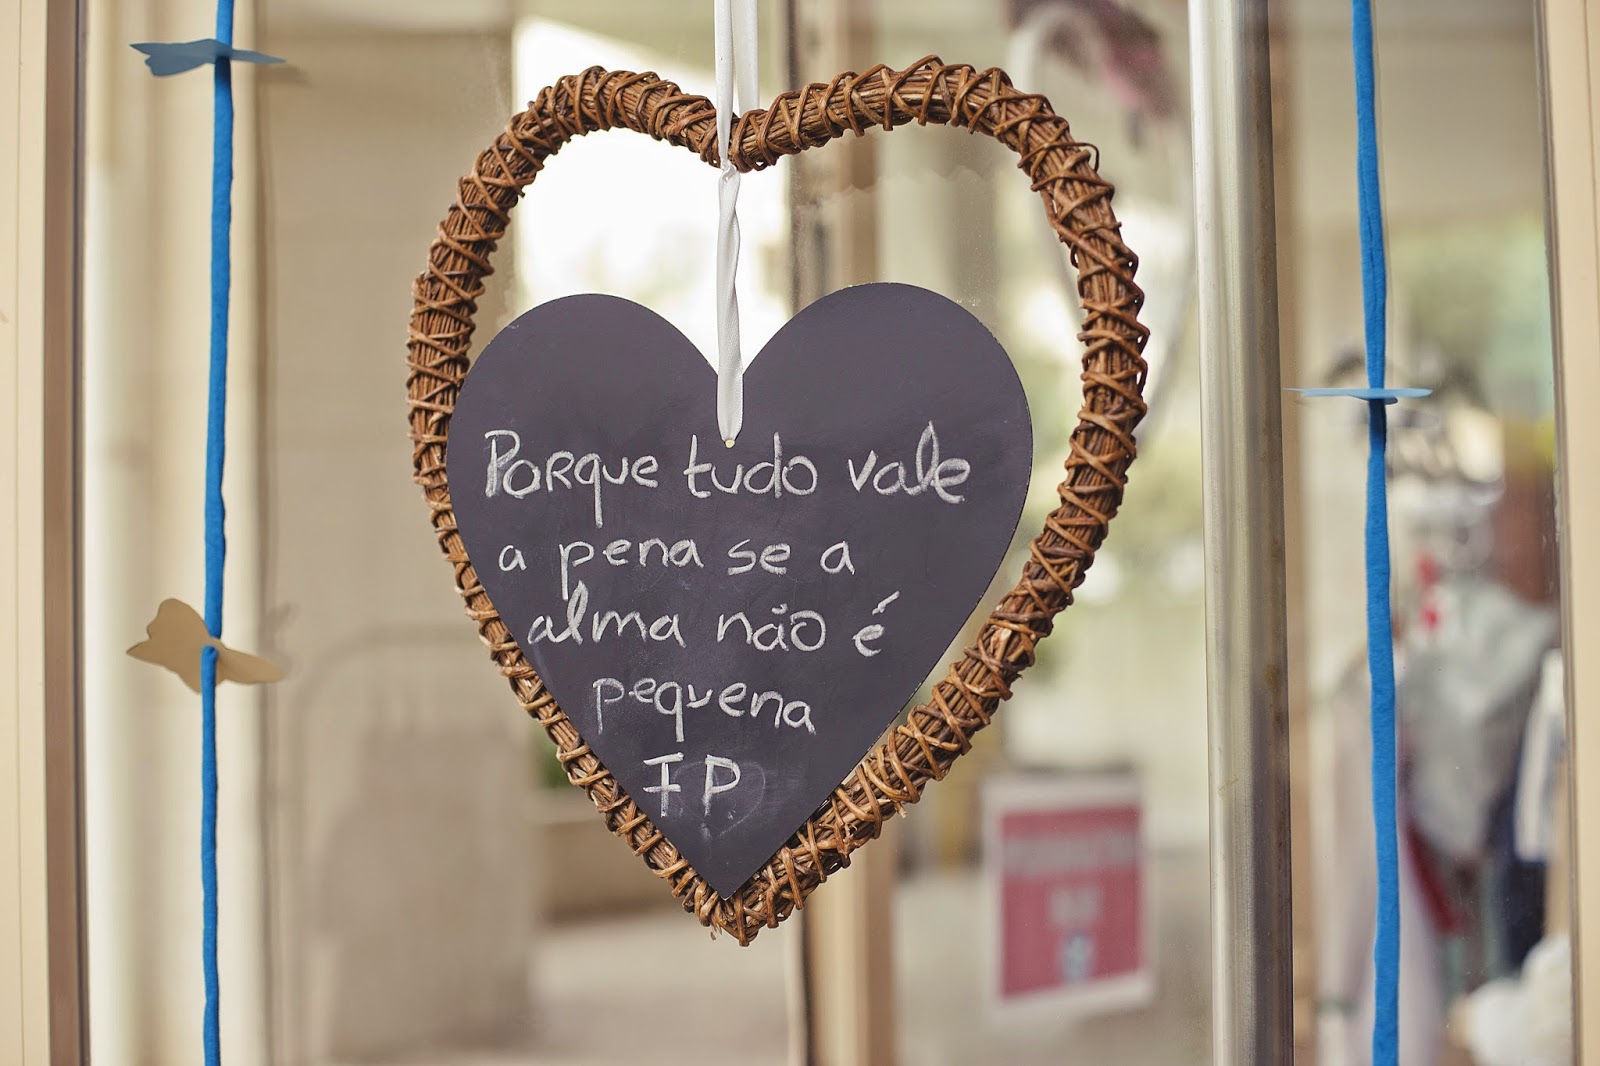 Porque tudo vale
a pena se a
alma não é
pequena
F P.